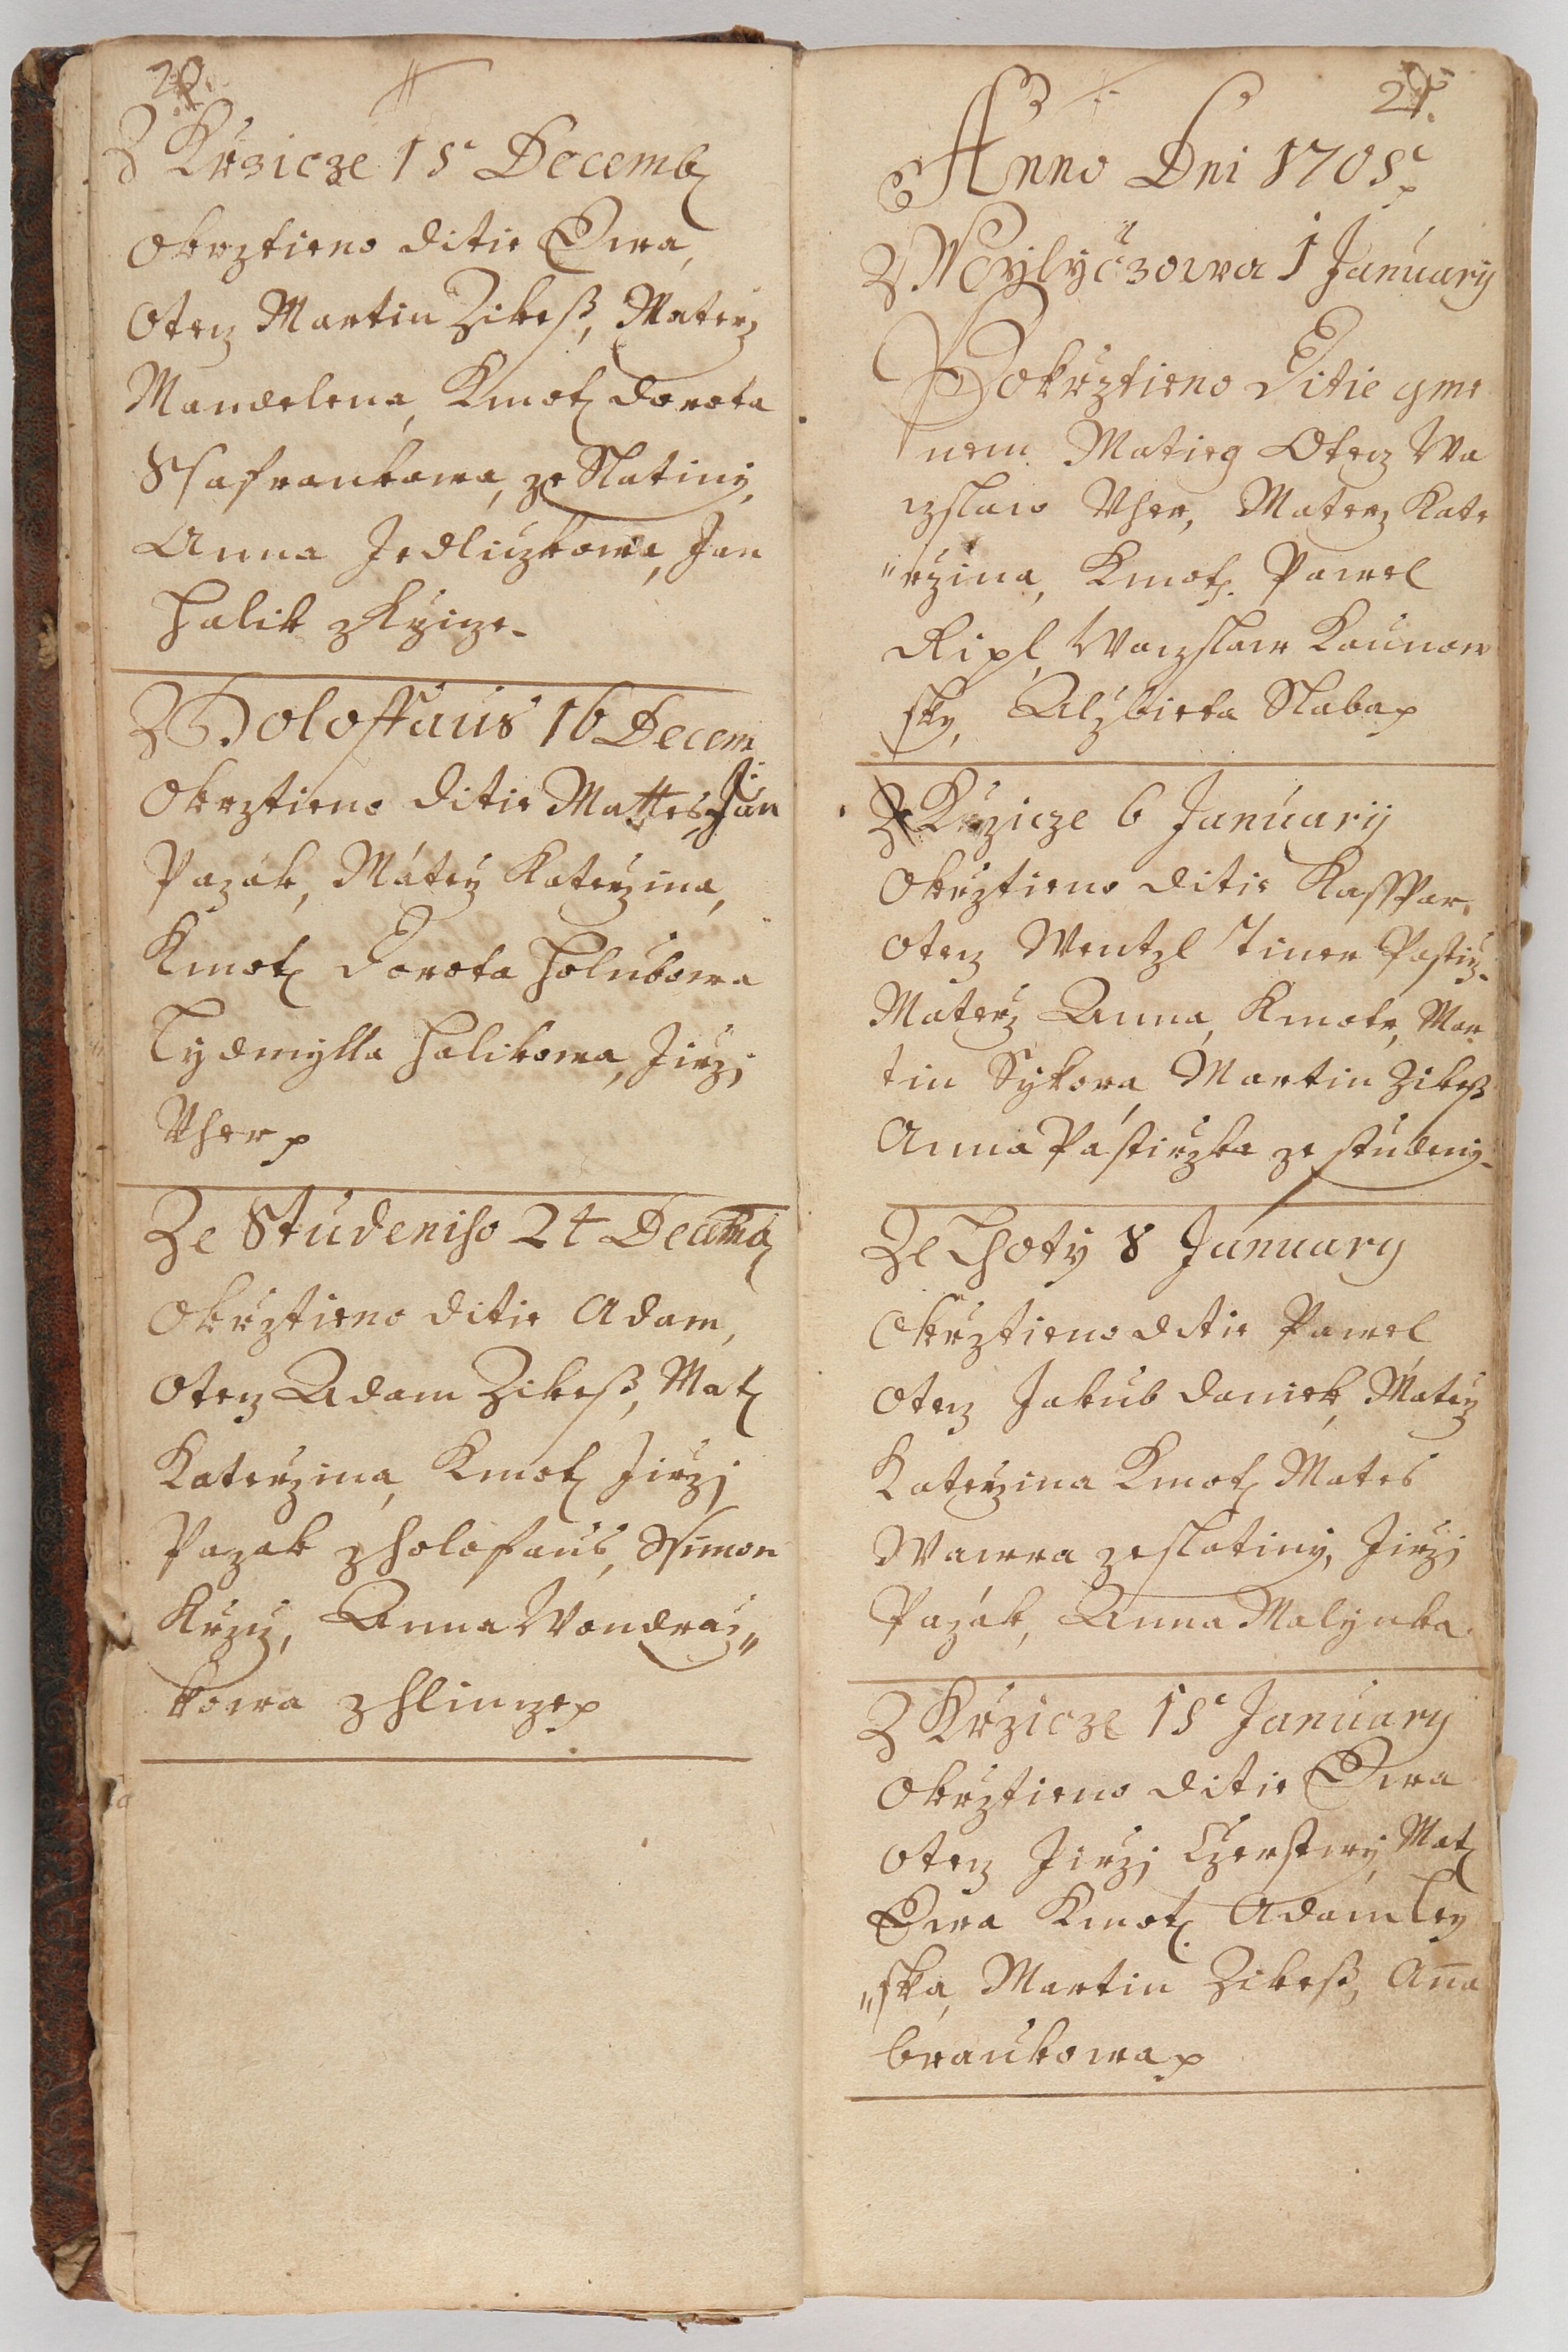 20.
Z Krzicze 15 Decemb
Okrztieno Ditie Ewa,
Otecz Martin Zikeß, Materz
Mandelena, Kmot Dorota
Ssafrankowa, ze Slatiny,
Anna Jedliczkowa, Jan
Halik z Krzicze.
Z Holoffaus 16 Decem
Okrztieno Ditie Mattes Jan
Pazák, Máterz Katerzina,
Kmot Dorota Holubowa
Lydmylla Halikowa, Jirzj
Vher
Ze Studeniho 24 Decemb
Okrztieno Ditie Adam,
Otecz Adam Zikeß, Mat
Katerzina, Kmot Jirzj
Pazak z Holofaus, Ssimon
Krziz, Anna Wondracz„
kowa z Hlincze
21.
Anno Dni 1705
Z 1 January
Pokrztieno Ditie gme
nem Matieg Otecz Wa
czslaw Vher, Materz Kate
„rzina, Kmot. Pawel
Ripl, Waczslaw Kaunow
sky, Alzbieta Slaba
Z Krzicze 6 January
Okrztieno Ditie Kassspar,
Otecz Wentzl Tiner Pastirz.
Materz Anna, Kmotr, Mar
tin Sykora Martin Zikeß
Anna Pástirzka ze Studeny.
Ze Lhoty 8 January
Okrztieno Ditie Pawel
Otecz Jakub Daniek, Máterz
Katerzina Kmot Mates
Wawra ze Slatiny, Jirzj
Pazák, Anna Malynka
Z Krzicze 15 January
Okrztieno Ditie Ewa
Otecz Jirzj Czerstwy, Mat
Ewa Kmot. Adam Ley
„ska, Martin Zikeß, Anna
Braukowa